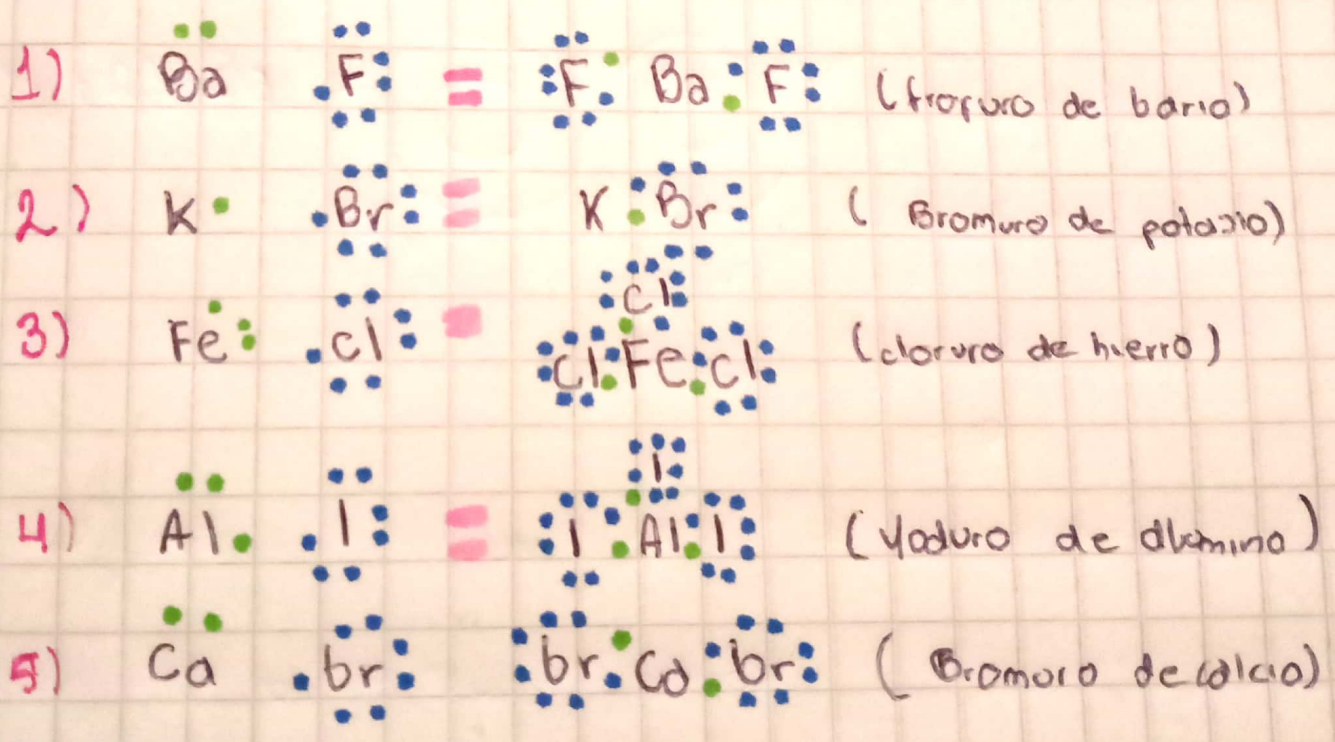 1) Ba F = F Ba F (froruro de bario)
2) K Br = K Br (Bromuro de potasio)
3) Fe cl = cl cl Fe cl (cloruro de hierro)
4) Al I = I I Al I (Yoduro de alumino)
5) Ca br = br Ca br (Bromoro de calcio)